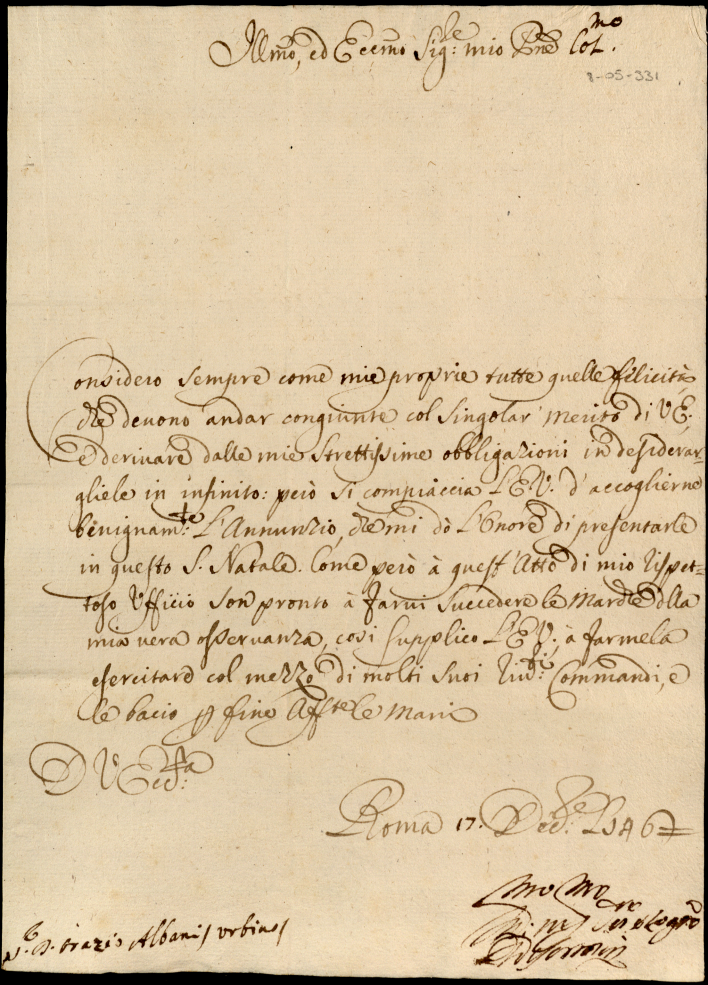 Illmo, ed Eccmo Sig:re mio Pne Colmo.
8-05-331
Considero sempre come mie proprie tutte quelle felicità
che devono andar congiunte col singolar merito di V.E:
e derivare dalle mie strettissime obbligazioni in desiderar-
gliele in infinito: però si compiaccia L'E.V. d'accoglierne
benignam:te L'Annunzio, che mi dò L'onore di presentarle
in questo S. Natale. Come però à quest'Atto di mio rispet-
toso Ufficio son pronto à farvi succedere le Marche della
mia vera osservanza, così supplico L'E.V: à farmela
esercitare col mezzo di molti suoi riv:ti Commandi, e
le bacio p fine Aff:te le Mani
D V Ecc:za
Roma 17. Dec:re
D. Orazio Albani / Urbino /